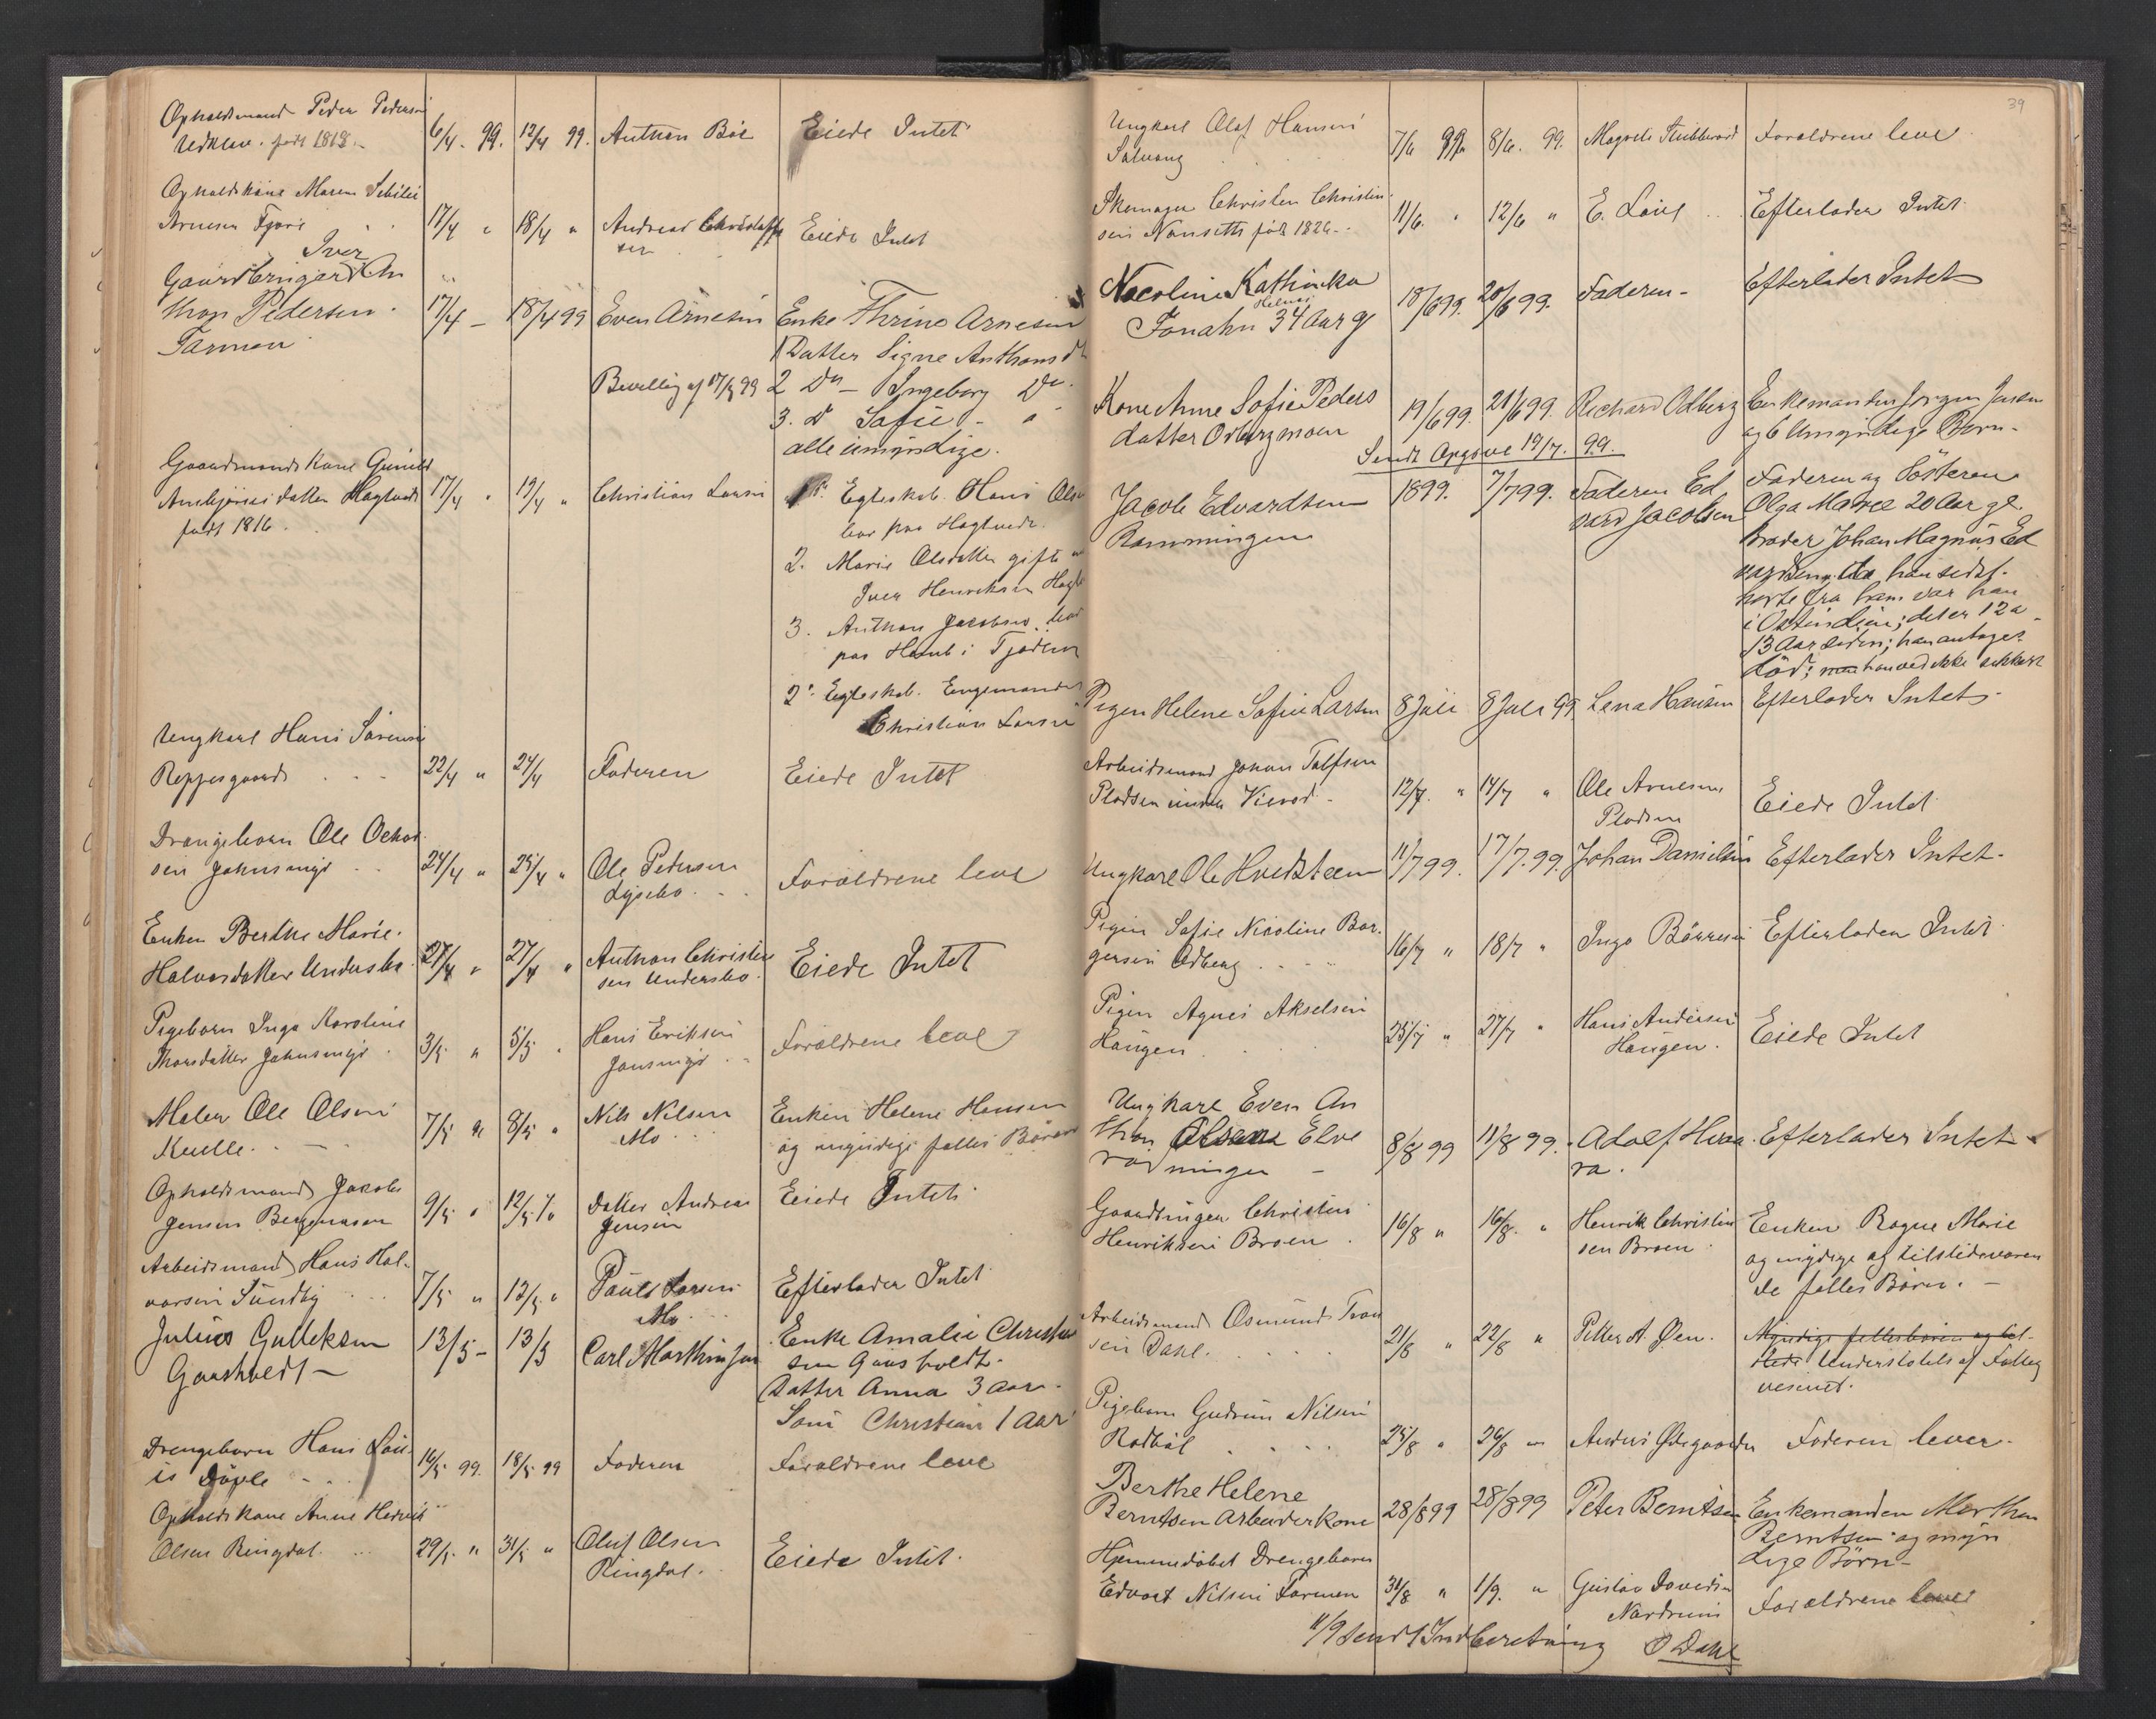 Opholdsmand Peder Pedersen
Udklev. født 1818. 6/4. 99. 12/4 99. Anthon Bøe Eiede Intet
Opholdskone Maren Sebilie
Arnesen Fjøre 17/4 " 18/4 " Andreas Christoffer
sen Eiede Intet
Iver
Gaardbruger An
thon Pedersen 17/4 - 18/4 99 Even Arnesen Enke Thrine Arnesen
Farmen
1 Datter Signe Anthonsdt
Bevilling af 17/5 99 2 Do - Ingeborg Do
3. D Sofie - "
alle umyndige.
Gaardmands Kone Gunild
Ambjørnsdatter Hagtvedt 17/4 " 19/4 " Christian Larsen 1ste Egteskab. Hans Olsen
født 1816.
bor paa Hagtvedt.
2. Marie Olsdatter gift
Iver Henriksen
3. Anthon Jacobsen. bor
paa i Tjødling
2det Egteskab. Engemanden
Christian Larsen
Ungkarl Hans Sørensen
Reppesgaard 22/4 " 24/4 Faderen Eiede Intet
Drengebarn Ole Oskar
sen Jahnsmyr 24/4 " 25/4 " Ole Pedersen
Lysebo. Forældrene leve
Enken Berthe Marie
Halvorsdatter Undersbo 27/4 " 27/4 " Anthon Christen
sen Undersbo. Eiede Intet
Pigebarn Inga Karoline
Thorsdatter Jahnsmyr 3/5 " 5/5 " Hans Eriksen
Jansmyr Forældrene leve
Maler Ole Olsen
Kvelle. 7/5 " 8/5 " Nils Nilsen
Mo Enken Helene Hansen
og myndige fælles Børn
Opholdsmand Jacob
Jensen Bergenåsen 9/5 " 12/5 " Datter Andrea
Jensen Eiede Intet
Arbeidsmand Hans Hal-
vorsen Sundby 7/5 " 12/5 " Paul Larsen
Mo Efterlader Intet
Julius Gulleksen
Gaasholdt 13/5 - 13/5 Carl Marthinsen Enke Amalie Christen
sen Gaasholdt.
Datter Anna 3 Aar.
Søn Christian 1 Aar
Drengebarn Hans Lou-
is 16/5 99. 18/5 99 Faderen Forældrene leve
Opholdskone Anne Hedvig
Olsen Ringdal. 29/5 " 31/5 " Oluf Olsen
Ringdal. Eiede Intet.
39
Ungkarl Olaf Hansen
Solvang 7/6 99 8/6. 99. Magrete Forældrene leve
Skomager Christen Christen
sen Nanseth født 1826. 11/6. " 12/6 " E. Love Efterlader Intet
Nicoline Kathinka
Helene
Jonahn 34 Aar gl 18/6 99. 20/6 99. Faderen - Efterlader Intet
Kone Anne Sofie Peders
datter Odbergmoen 19/6 99. 21/6 99. Richard Odberg Enkemanden Jørgen Jensen
og 6 Umyndige Børn -
Sendt Opgave 19/7. 99.
Jacob Edvardsen
Ramningen 1899. 7/7 99. Faderen Ed
vard Jacobsen Faderen og Søsteren
Olga Marie 20 Aar gl.
Broder Johan Magnus Ed
vardsen, da han sidst
hørte fra ham var han
i Ostindien; det er 12 a
13 Aar siden; han antages
død; men han ved ikke sikkert
Pigen Helene Sofie Larsen 8 Juli 8 Juli 99 Lena Hansen Efterlader Intet -
Arbeidsmand Johan Tolfsen
Pladsen under Vierod - 12/7. " 14/7 " Ole Arnesen
Pladsen Eiede Intet
Ungkarl Ole Hvedsteen 11/7 99. 17/7. 99. Johan Danielsen Efterlader Intet -
Pigen Sofie Nicoline Bør-
gersen Odberg 16/7 " 18/7 " Inga Børresen Efterlader Intet
Pigen Agnes Akselsen
Haugen 25/7 " 27/7 " Hans Andersen
Haugen. Eiede Intet
Ungkarl Even An
thon Olsen Elve
rødningen - 8/8 99 11/8 99. Adolf Herra
ra. Efterlader Intet
Gaardbruger Christen
Henriksen Broen 16/8 " 16/8. " Henrik Christen
sen Broen Enken Ragne Marie
og myndige og tilstedeværen
de fælles Børn. -
Arbeidsmand Osmund Tron
sen Dahl. 21/8 " 22/8 " Petter A. Øen. Myndige fællesbørn og hel-
Understøttet af Fattig
vesenet.
Pigebarn Gudrun Nilsen
Rødbøl 25/8 " 26/8 " Anders Ødegaarden Faderen lever.
Berthe Helene
Berntsen Arbeiderkone 28/8 99 28/8 99 Peter Berntsen Enkemanden Marthin
Berntsen og myn
dige Børn -
Hjemmedøbt Drengebarn
Edvart Nilsen Farmen 31/8 " 1/9. " Gustav Davidsen
Nordrum Forældrene lever
11/9 Sendt Indberetning O Dahl